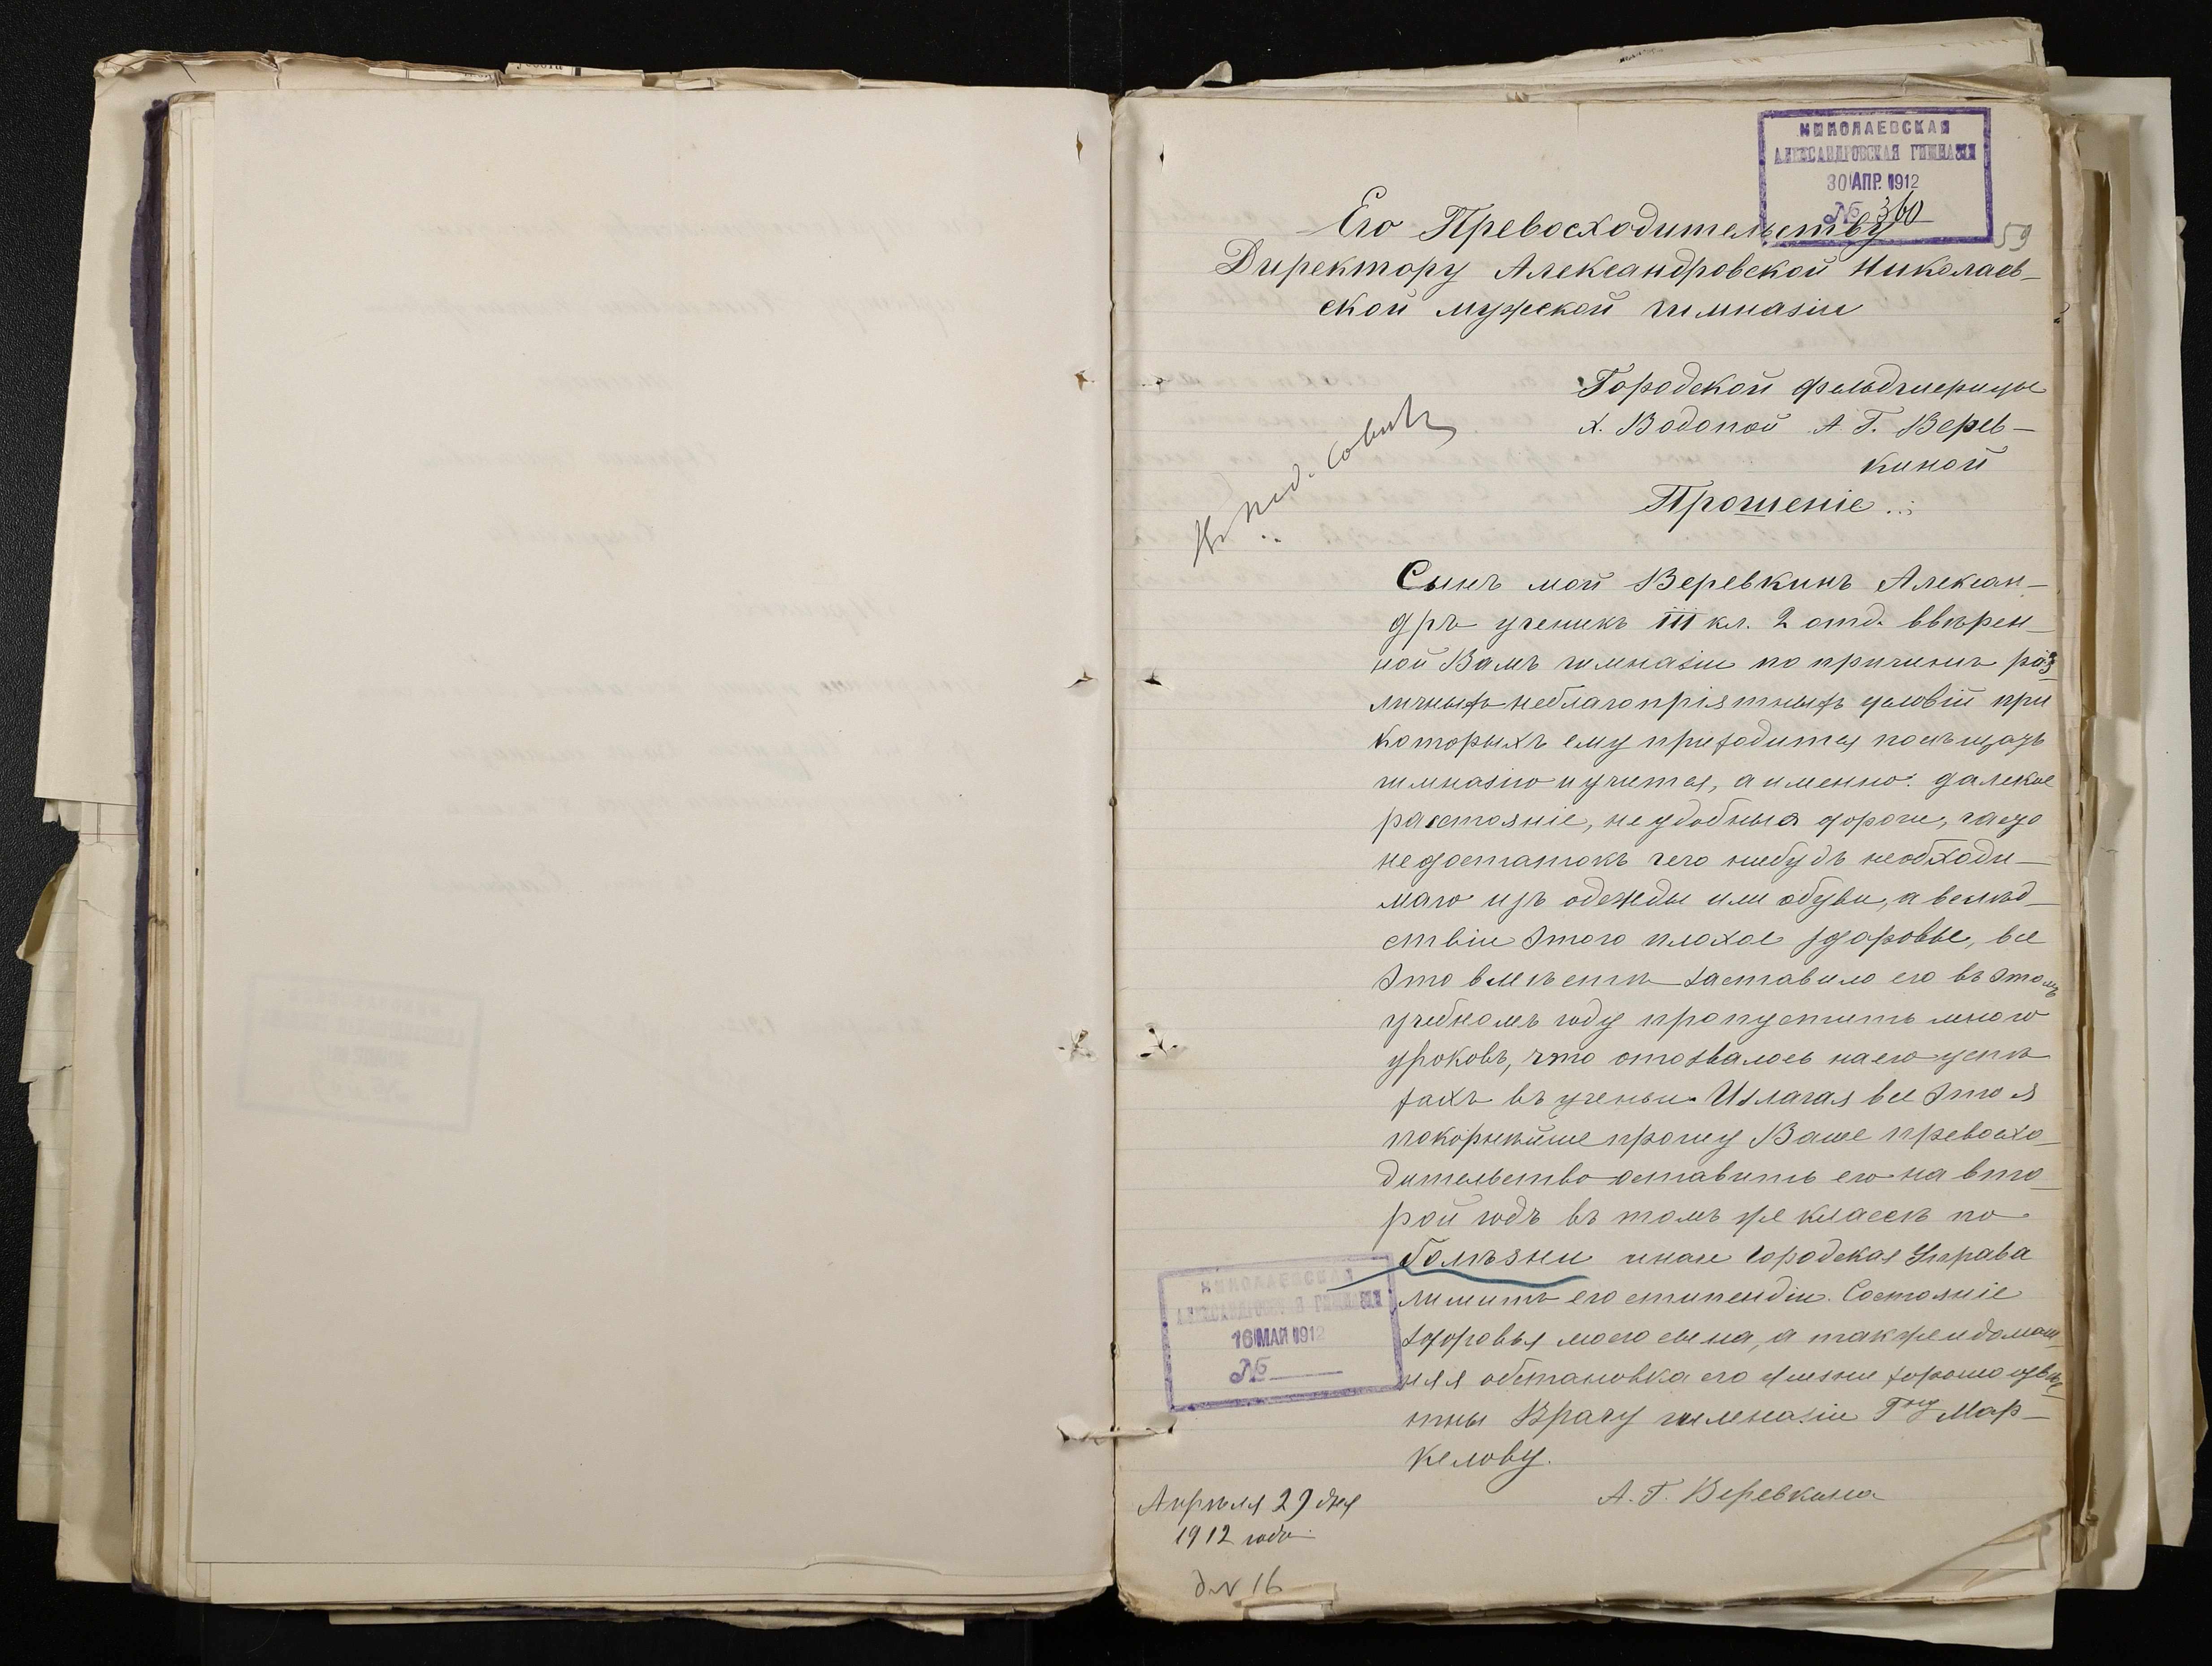 НИКОЛАЕВСКАЯ
АЛЕКСАНДРОВСКАЯ ГИМНАЗІЯ
30 АПР. 1912
№ 360
59
Его Превосходительству
Директору Александровской Николаев-
ской мужской гимназіи
Городской фельдшерицы
х. Водопой А. Г. Верев-
киной
Прошеніе
Въ пед. совѣтъ
Сынъ мой Веревкинъ Алексан-
дръ ученикъ III кл. 2 отд. ввѣрен-
ной Вамъ гимназіи по причинѣ раз-
личныхъ неблагопріятныхъ условій при
которыхъ ему приходится посѣщать
гимназію и учится, а именно: далекое
разстояніе, неудобныя дороги, часто
недостатокъ чего нибудь необходи-
маго изъ одежды или обуви, а вслѣд-
ствіи этого плохое здоровье, все
это вмѣстѣ заставило его въ этомъ
учебномъ году пропустить много
уроковъ, что отозвалось на его успѣ
хахъ въ ученьи. Излагая все это я
покорнѣйше прошу Ваше превосхо-
дительство оставить его на вто-
рой годъ въ томъ же классѣ по
болѣзни иначе Городская Управа
лишитъ его стипендіи. Состояніе
здоровья моего сына, а также и домаш-
няя обстановка его жизни хорошо извѣ-
тны Врачу гимназіи Гну Мар-
келову.
А. Г. Веревкина
НИКОЛАЕВСКАЯ
АЛЕКСАНДРОВСКАЯ ГИМНАЗІЯ
16 МАЯ 1912
№
Апрѣля 29 дня
1912 года
д № 16